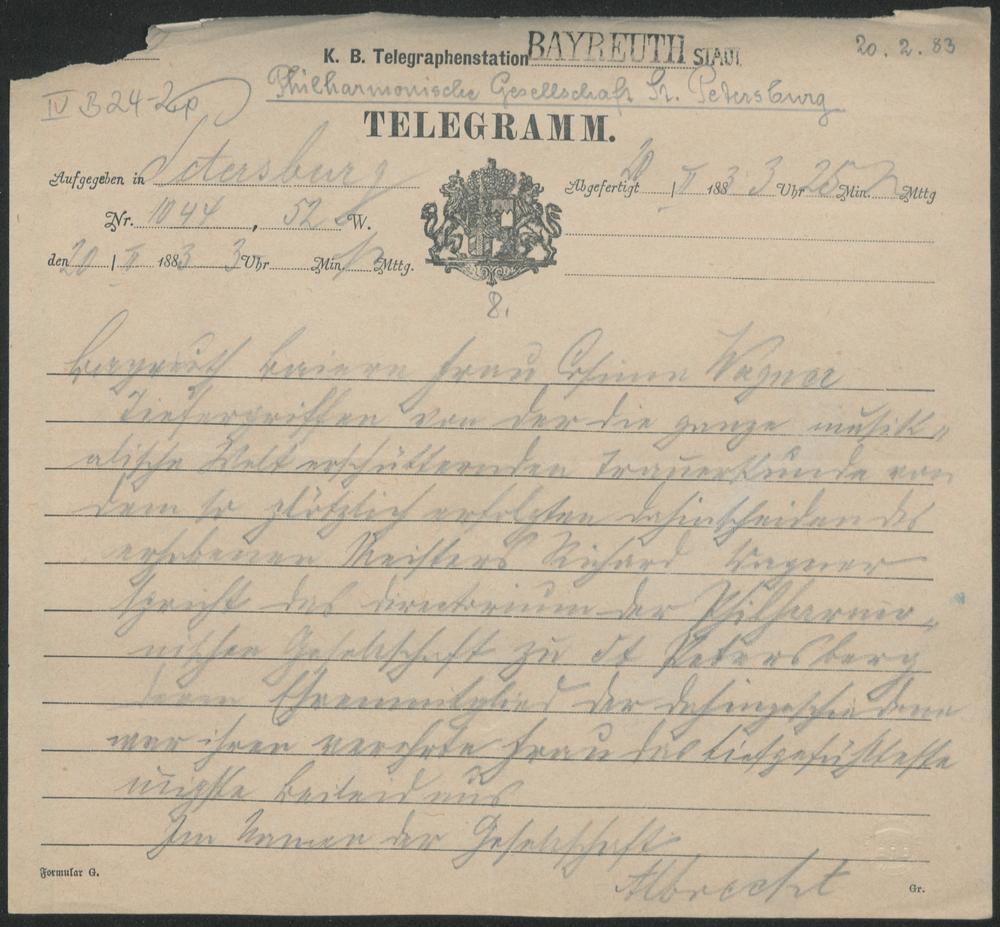 K. B. Telegraphenstation BAYREUTH STADT
20. 2. 83
IV B 24-2
Philharmonische Gesellschaft St. Petersburg
TELEGRAMM.
Aufgegeben in Petersburg
Nr. 1044, 52 W.
den 20 / II 1883 3 Uhr Min. Mttg.
Abgefertigt 20 / II 1883 3 Uhr 25 Min. Mttg
8.
Bayreuth Baiern Frau Cosima Wagner
Tiefergriffen von der die ganze musik-
alische Welt erschütternden Trauerkunde von
dem so plötzlich erfolgten dahinscheiden des
erhabenen Meisters Richard Wagner
spricht das directorium der Philharmo-
nischen Gesellschaft zu St Petersberg
deren Ehrenmitglied der dahingeschiedene
war ihren verehrte Frau das tiefgefühlteste
Beileid aus
Im Namen der Gesellschaft
Albrecht
Formular G.
Gr.